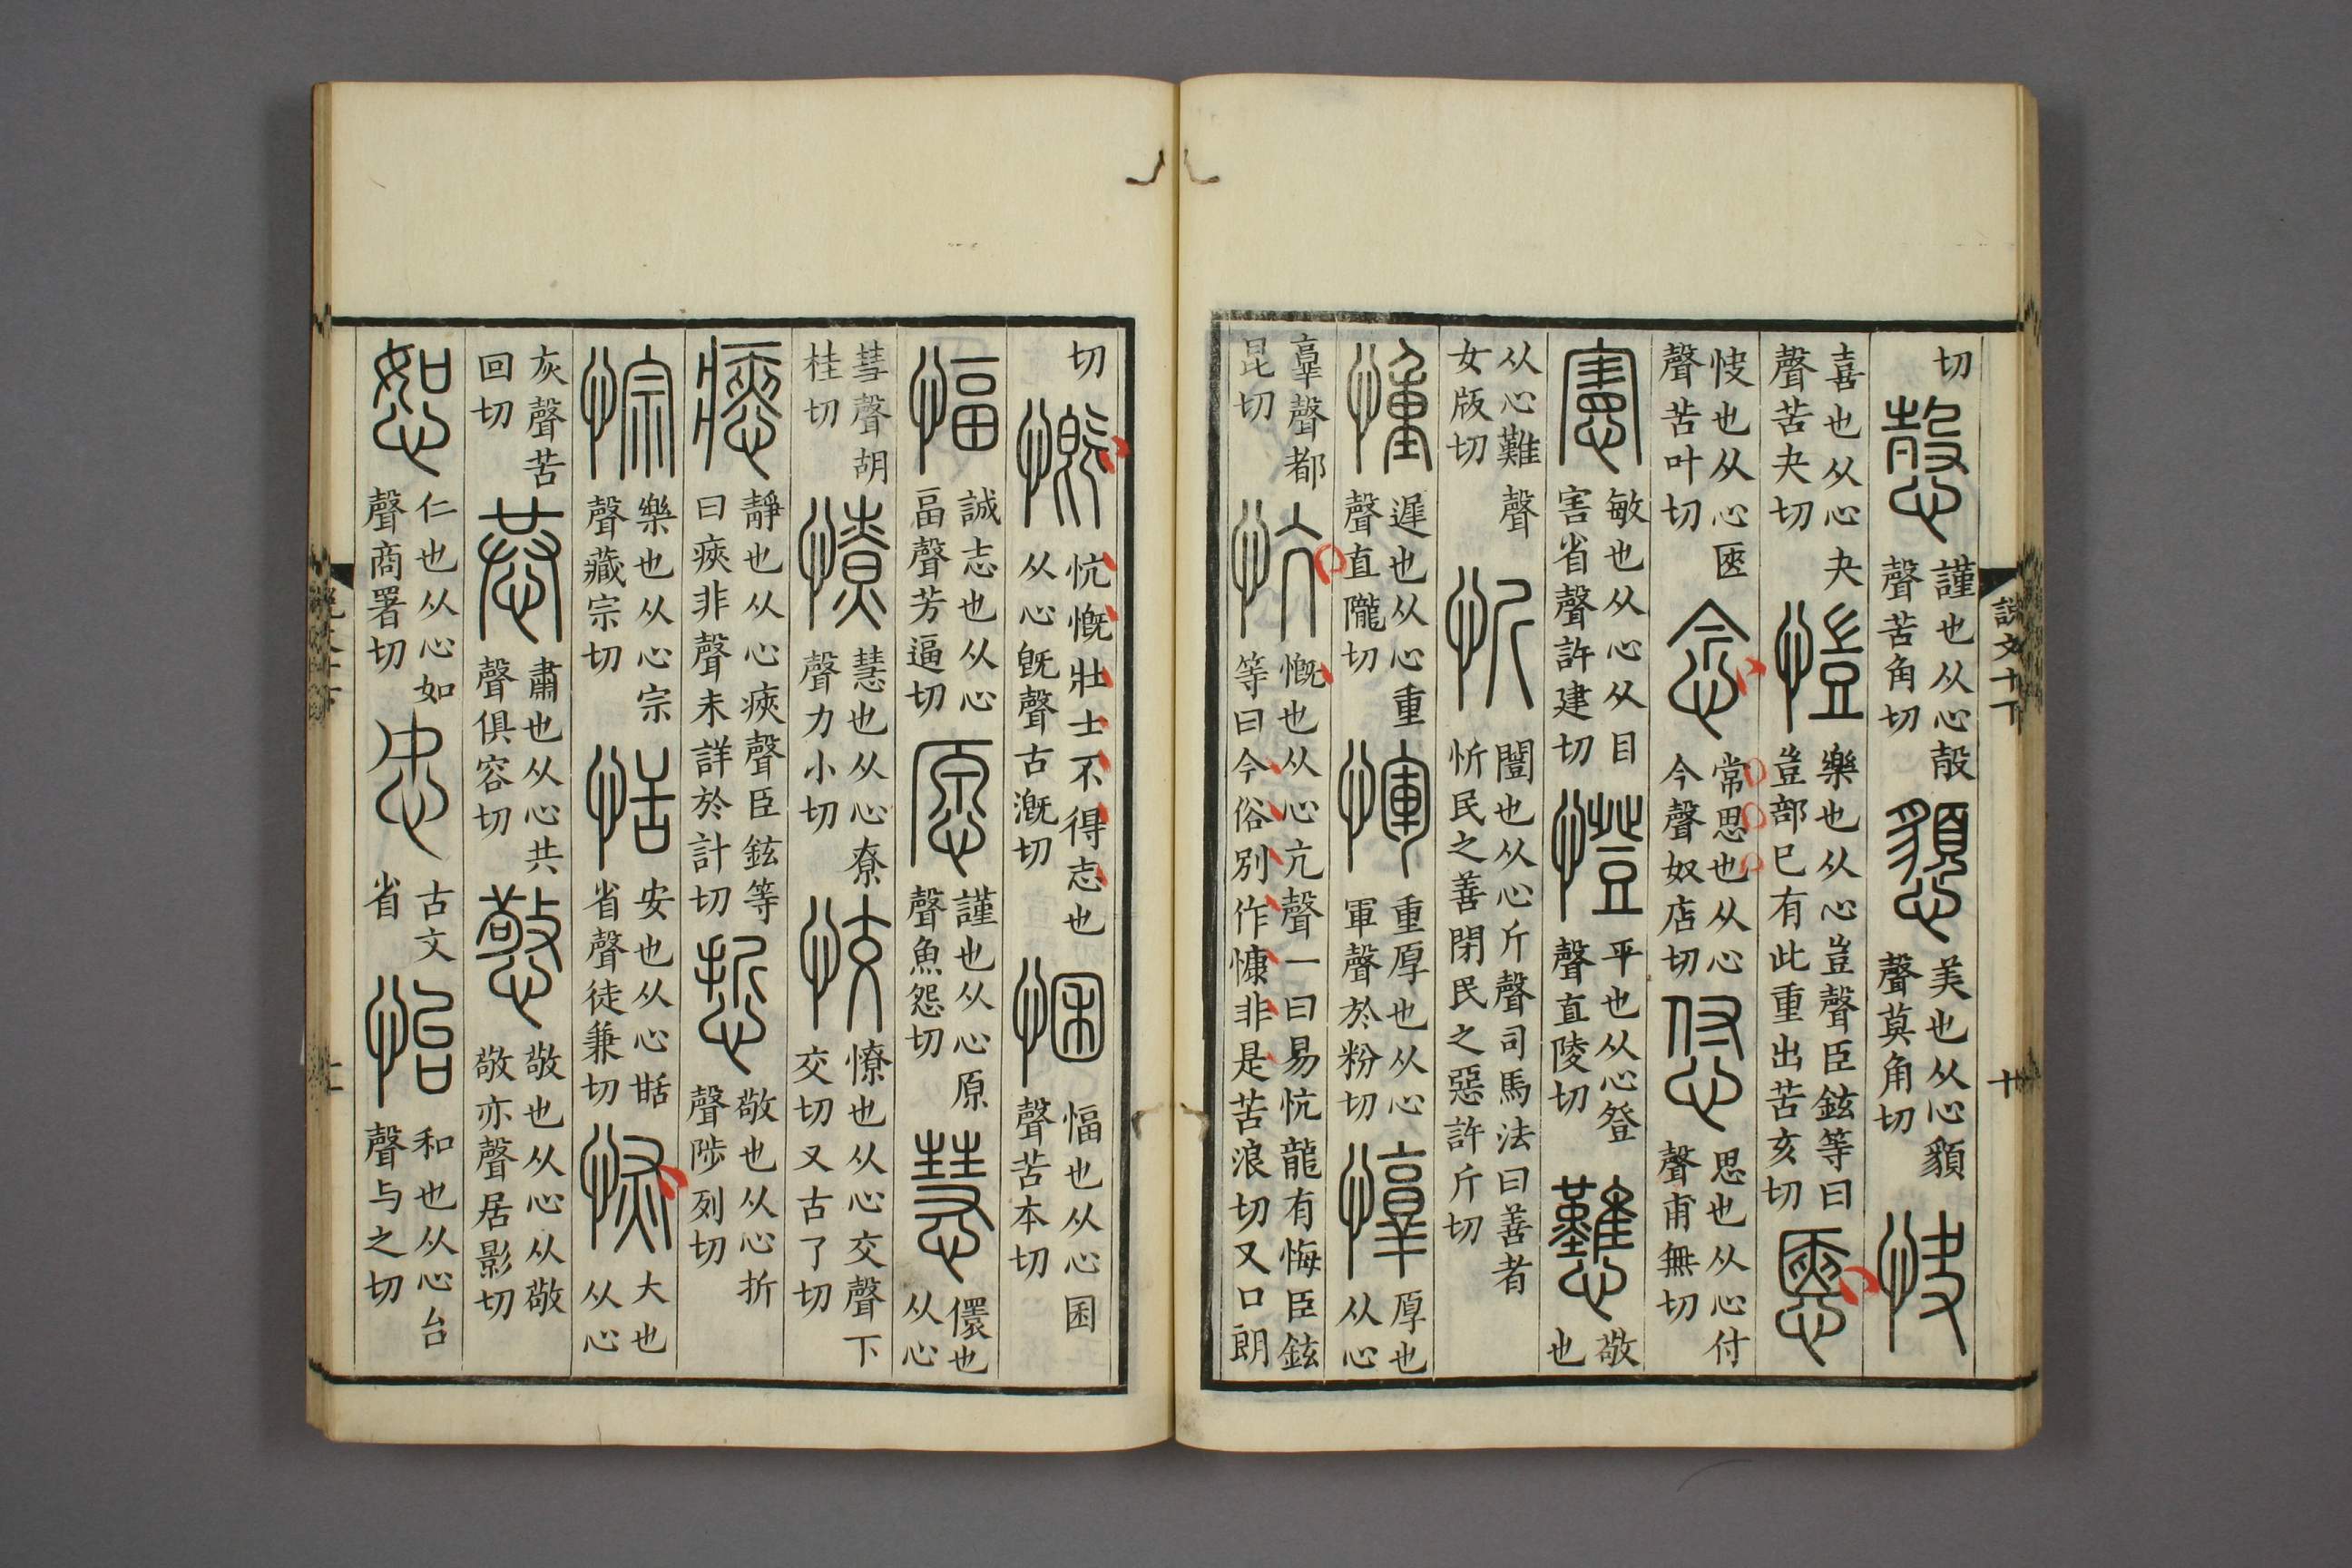 說文十下
廿
切 愨 謹也从心㱿聲苦角切 𢡏 美也从心䫉聲莫角切 快
喜也从心夬聲苦夬切 愷 樂也从心豈聲臣鉉等曰豈部已有此重出苦亥切 㥦
快也从心匧聲苦叶切 念 常思也从心今聲奴店切 㤔 思也从心付聲甫無切
憲 敏也从心从目害省聲許建切 憕 平也从心登聲直陵切 戁 敬也
从心難聲女版切 忻 闓也从心斤聲司馬法曰善者忻民之善閉民之惡許斤切
㣫 遲也从心重聲直隴切 惲 重厚也从心軍聲於粉切 惇 厚也从心
𦎧聲都昆切 忼 慨也从心亢聲一曰易忼龍有悔臣鉉等曰今俗別作慷非是苦浪切又口朗
切 慨 忼慨壯士不得志也从心旣聲古溉切 悃 愊也从心困聲苦本切
愊 誠志也从心畐聲芳逼切 愿 謹也从心原聲魚怨切 慧 儇也从心
彗聲胡桂切 憭 慧也从心尞聲力小切 恔 憭也从心交聲下交切又古了切
瘱 靜也从心㾜聲臣鉉等曰㾜非聲未詳於計切 悊 敬也从心折聲陟列切
悰 樂也从心宗聲藏宗切 恬 安也从心甛省聲徒兼切 恢 大也从心
灰聲苦回切 恭 肅也从心共聲俱容切 憼 敬也从心从敬敬亦聲居影切
恕 仁也从心如聲商署切 㣽 古文省 怡 和也从心台聲与之切